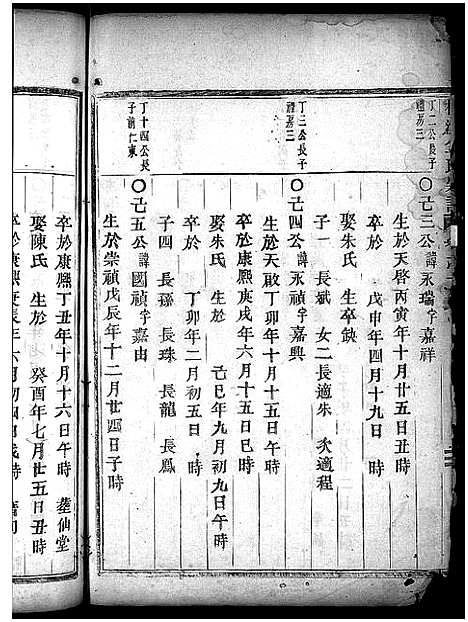 丁二公長子
禮房三
〇己三公諱永瑞字嘉祥
生於天啓丙寅年十月廿五日丑時
卒於　戊申年四月十九日　時
娶朱氏　生卒缺
子一　長斌　女二長適朱　次適程
丁三公長子
禮房三
〇己四公諱永禎字嘉興
生於天啟丁卯年二月十五日亥時
卒於康熙庚戌年六月十五日巳時
娶朱氏　生於　己巳年九月初九日午時
卒於　丁卯年二月初五日　時
子四　長孫　長珠　長龍　長鳳
丁十四公長
子前仁東
〇己五公諱國禎字嘉由
生於崇禎戊辰年十二月廿四日子時
卒於康熙丁丑年十月十六日午時　葬仙堂
娶陳氏　生於　癸酉年七月廿五日丑時
卒於康熙庚辰年六月初四日戌時